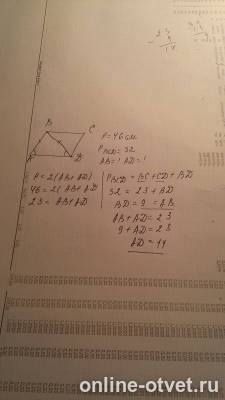 B
C
A
D
P=46см
P BCD = 32
AB=? AD=?
P=2(AB+AD)
46=2(AB+AD
23=AB+AD
P BCD = BC+CD+BD
32 = 23+BD
BD=9=AB
AB+AD=23
9+AD=23
AD=14
online-otvet.ru